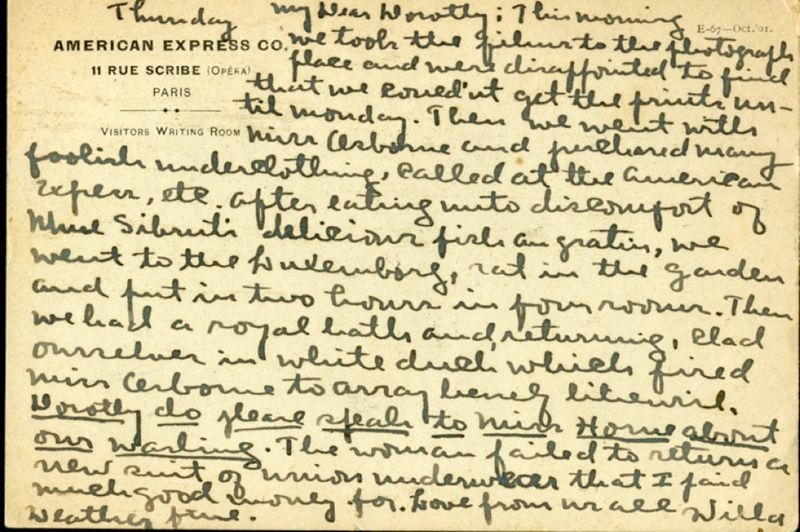 Thursday
My Dear Dorothy: This morning
E-67—Oct.'01.
we took the films to the photograph
AMERICAN EXPRESS CO.
place and were disappointed to find
11 RUE SCRIBE (OPÉRA)
that we could'nt get the prints un-
PARIS
til monday. Then we went with
VISITORS WRITING ROOM
Miss Osborne and purchased many
foolish underclothing, called at the American
Express, etc. after eating unto discomfort of
Mme Sibut's delicious fish au gratin, we
went to the Luxemborg, sat in the garden
and put in two hours in four rooms. Then
we had a royal bath and, returning, clad
ourselves in white duck which fired
Miss Osborne to array herself likewise.
Dorothy do please speak to Miss Home about
our washing. The woman failed to return a
new suit of union underwear that I paid
much good money for. Love from us all Willa
Weather fine.